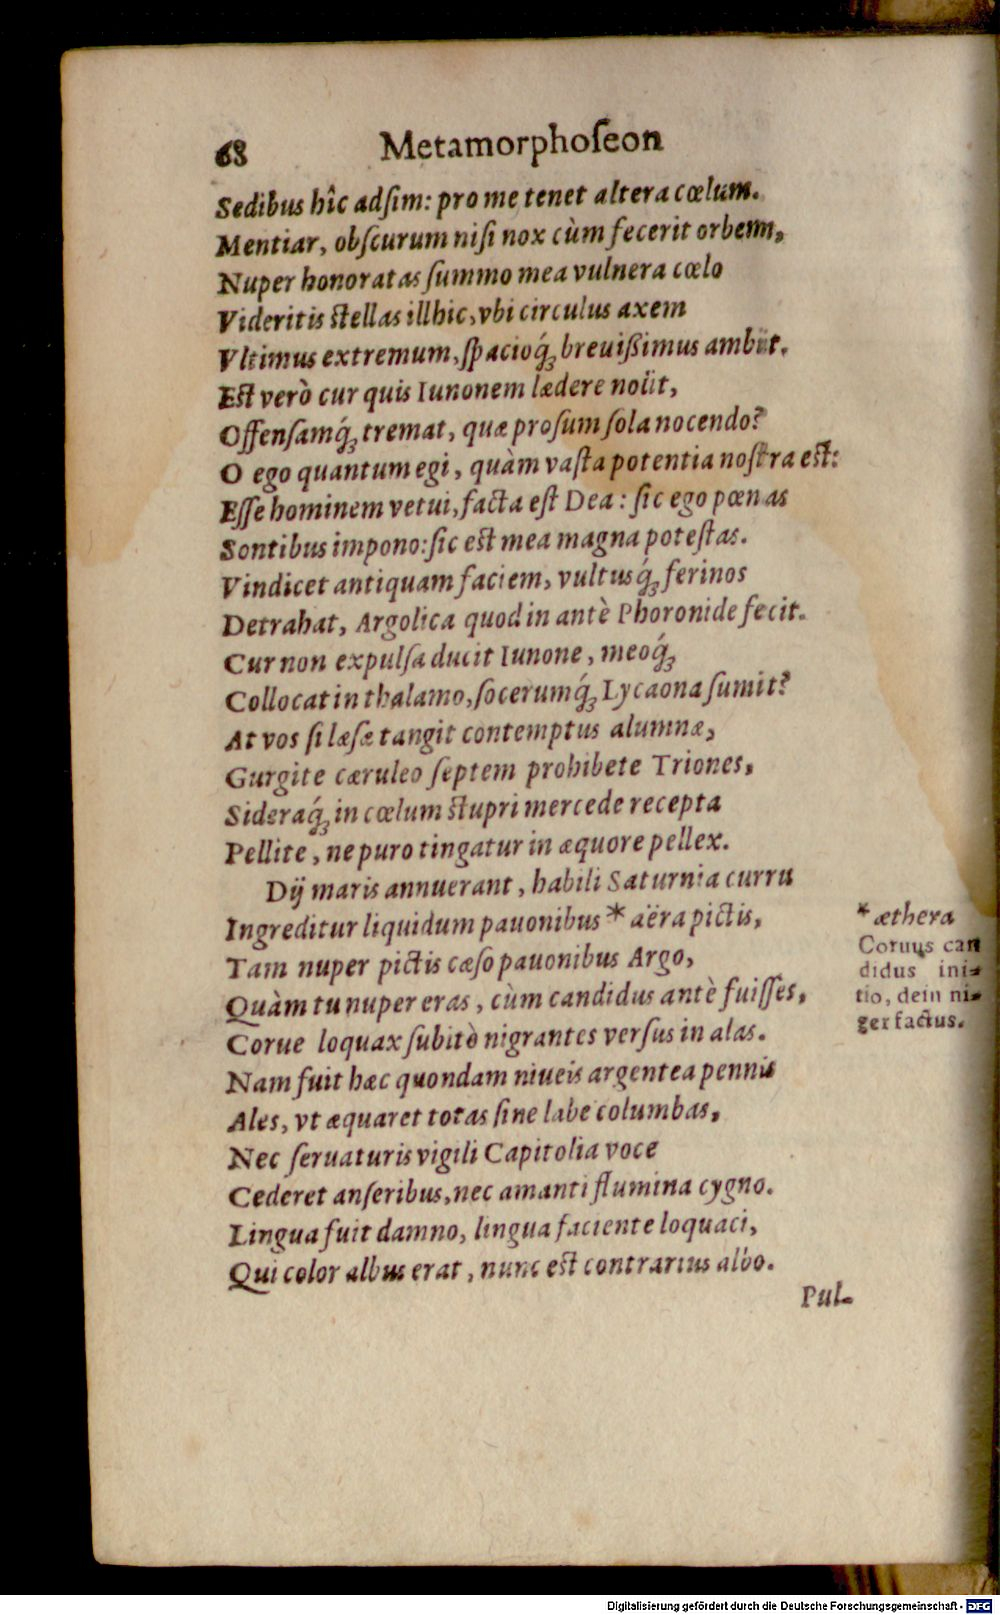 68 Metamorphoſeon
Sedibus hîc adſim: pro me tenet altera cœlum.
Mentiar, obſcurum niſi nox cùm fecerit orbem,
Nuper honoratas ſummo mea vulnera cœlo
Videritis ſtellas illhic, vbi circulus axem
Vltimus extremum, ſpacioq́; breuißimus ambiit.
Eſt verò cur quis Iunonem lædere nolit,
Offenſamq́; tremat, quæ proſum ſola nocendo?
O ego quantum egi, quàm vaſta potentia noſtra eſt:
Eſſe hominem vetui, facta eſt Dea: ſic ego pœnas
Sontibus impono: ſic eſt mea magna poteſtas.
Vindicet antiquam faciem, vultusq́; ferinos
Detrahat, Argolica quod in antè Phoronide fecit.
Cur non expulſa ducit Iunone, meoq́;
Collocat in thalamo, ſocerumq́; Lycaona ſumit?
At vos ſi læſæ tangit contemptus alumnæ,
Gurgite cæruleo ſeptem prohibete Triones,
Sideraq́; in cœlum ſtupri mercede recepta
Pellite, ne puro tingatur in æquore pellex.
Dij maris annuerant, habili Saturnia curru
Ingreditur liquidum pauonibus * aëra pictis,
Tam nuper pictis cæſo pauonibus Argo,
Quàm tu nuper eras, cùm candidus antè fuiſſes,
Corue loquax ſubitò nigrantes verſus in alas.
Nam fuit hæc quondam niueis argentea pennis
Ales, vt æquaret totas ſine labe columbas,
Nec ſeruaturis vigili Capitolia voce
Cederet anſeribus, nec amanti flumina cygno.
Lingua fuit damno, lingua faciente loquaci,
Qui color albus erat, nunc eſt contrarius albo.
Pul-
* æthera
Coruus can
didus ini-
tio, dein ni-
ger factus.
Digitalisierung gefördert durch die Deutsche Forschungsgemeinschaft - DFG